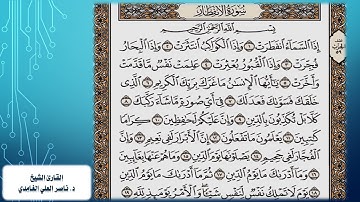 سُورَةُ الانفِطَارِ
بِسْمِ اللَّهِ الرَّحْمَٰنِ الرَّحِيمِ
إِذَا السَّمَاءُ انفَطَرَتْ ١ وَإِذَا الْكَوَاكِبُ انتَثَرَتْ ٢ وَإِذَا الْبِحَارُ
فُجِّرَتْ ٣ وَإِذَا الْقُبُورُ بُعْثِرَتْ ٤ عَلِمَتْ نَفْسٌ مَّا قَدَّمَتْ
وَأَخَّرَتْ ٥ يَا أَيُّهَا الْإِنسَانُ مَا غَرَّكَ بِرَبِّكَ الْكَرِيمِ ٦ الَّذِي
خَلَقَكَ فَسَوَّاكَ فَعَدَلَكَ ٧ فِي أَيِّ صُورَةٍ مَّا شَاءَ رَكَّبَكَ ٨
كَلَّا بَلْ تُكَذِّبُونَ بِالدِّينِ ٩ وَإِنَّ عَلَيْكُمْ لَحَافِظِينَ ١٠ كِرَامًا
كَاتِبِينَ ١١ يَعْلَمُونَ مَا تَفْعَلُونَ ١٢ إِنَّ الْأَبْرَارَ لَفِي نَعِيمٍ ١٣ وَإِنَّ
الْفُجَّارَ لَفِي جَحِيمٍ ١٤ يَصْلَوْنَهَا يَوْمَ الدِّينِ ١٥ وَمَا هُمْ عَنْهَا بِغَائِبِينَ
١٦ وَمَا أَدْرَاكَ مَا يَوْمُ الدِّينِ ١٧ ثُمَّ مَا أَدْرَاكَ مَا يَوْمُ الدِّينِ
١٨ يَوْمَ لَا تَمْلِكُ نَفْسٌ لِّنَفْسٍ شَيْئًا وَالْأَمْرُ يَوْمَئِذٍ لِّلَّهِ ١٩
القارئ الشيخ
د. ناصر العلي الغامدي